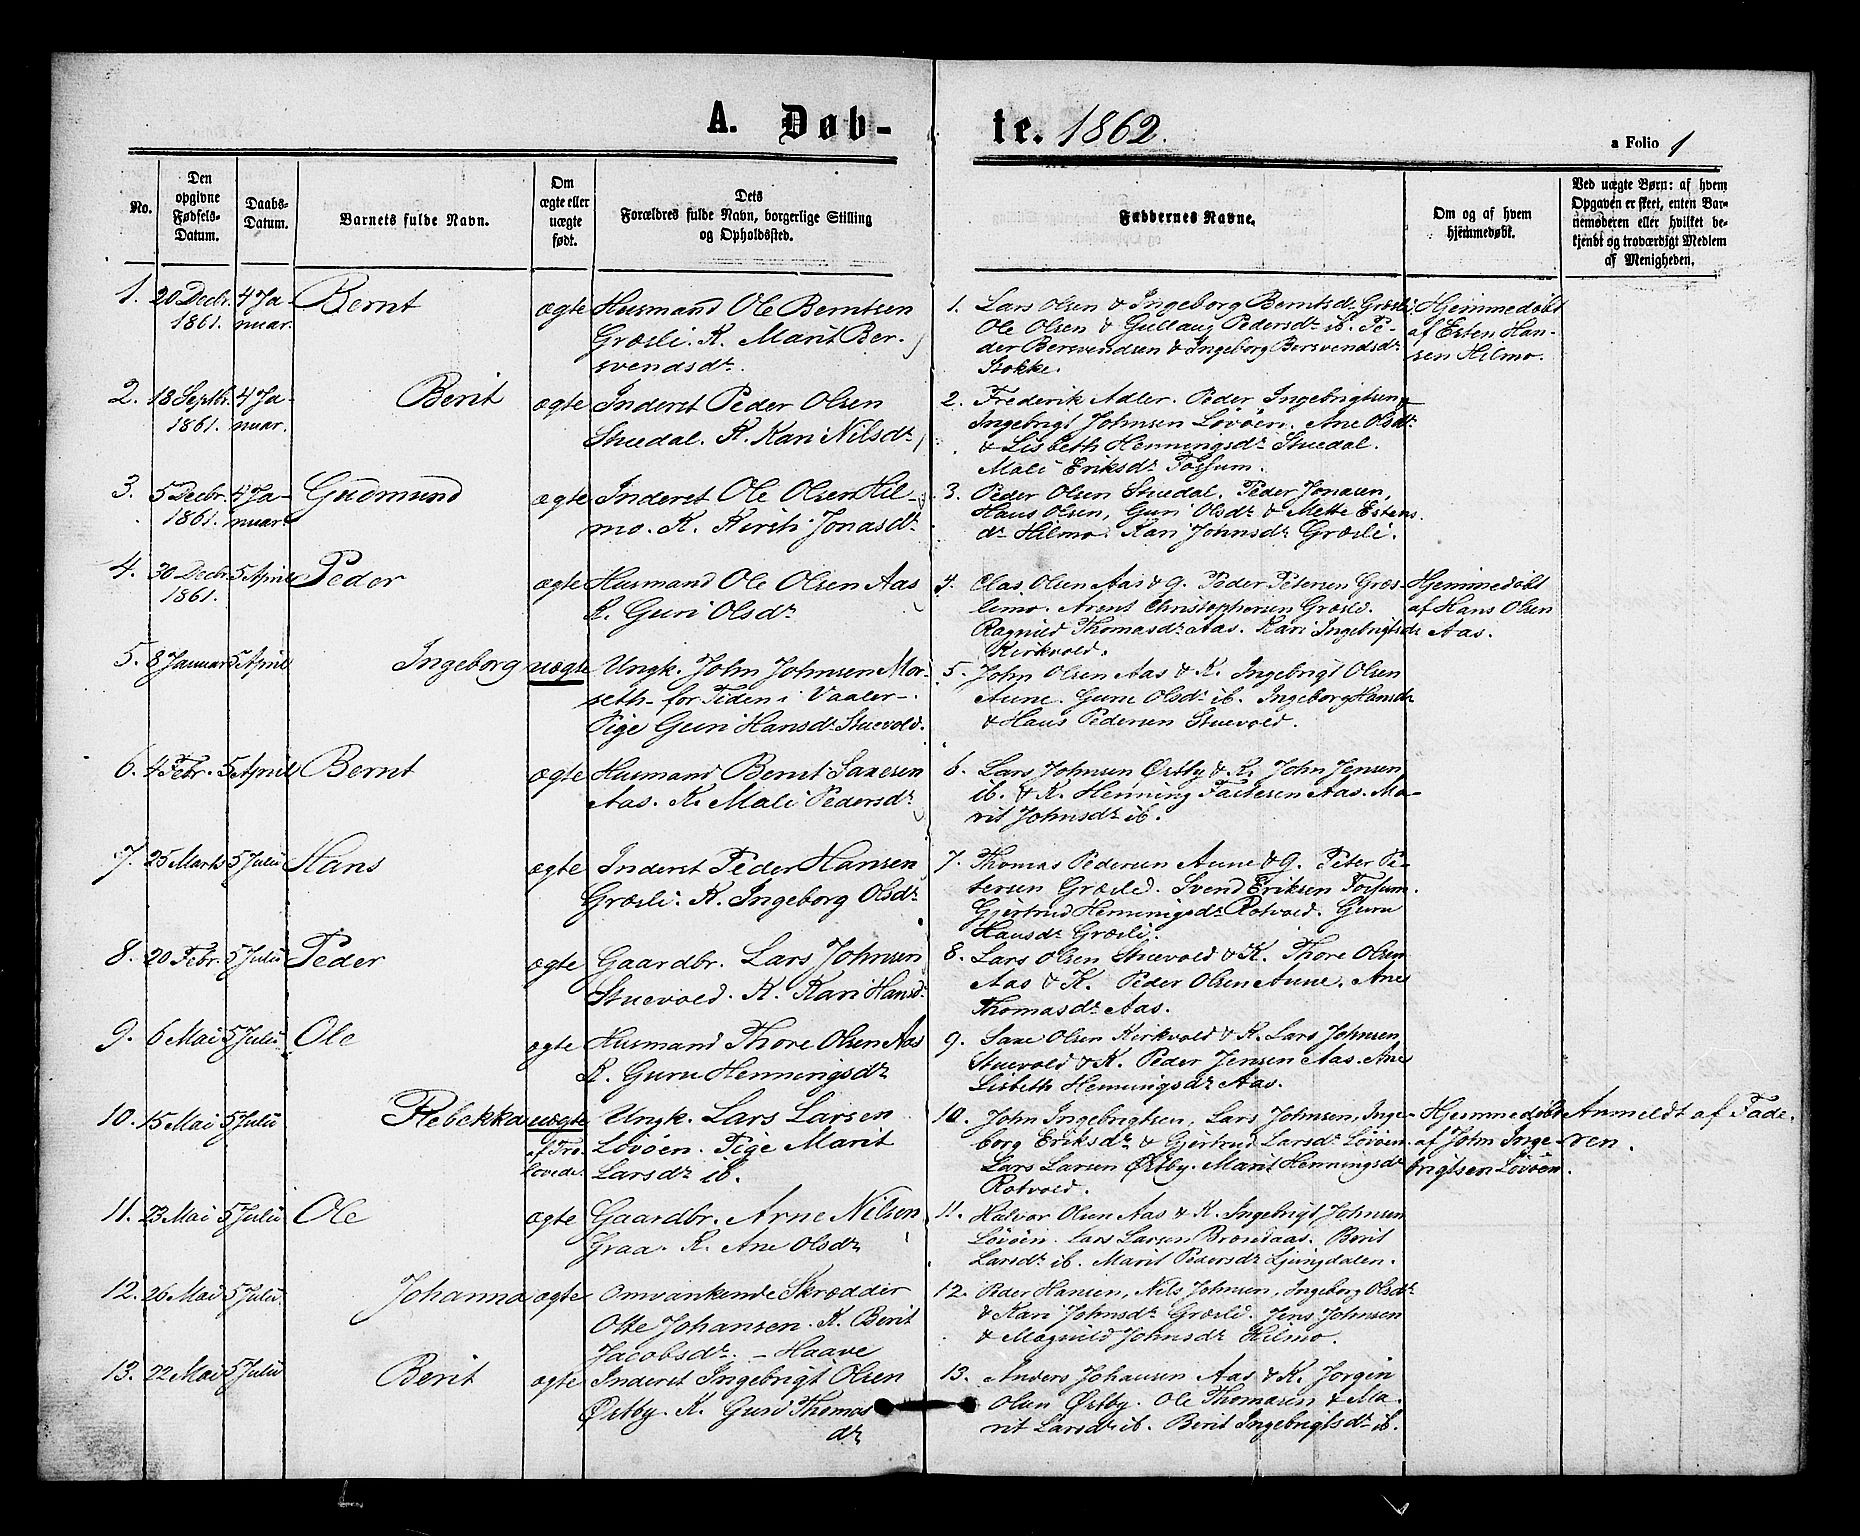 A. Døb-
te. 1862.
a Folio 1
No.
Den
opgivne
Fødsels-
Datum.
Daabs-
Datum.
Barnets fulde Navn.
Om
ægte eller
uægte
født.
Dets
Forældres fulde Navn, borgerlige Stilling
og Opholdssted.
Faddernes Navne.
Om og af hvem
hjemmedøbt.
Ved uægte Børn: af hvem
Opgaven er skeet, enten Bar-
nemoderen eller hvilket be-
kjendt og troværdigt Medlem
af Menigheden.
1. 20 Decbr. 4 Ja- Bernt ægte Husmand Ole Berntsen
1861. nuar. Græsli. K. Marit Ber-
svendsdr.
1. Lars Olsen & Ingeborg Berntsdr Græsli,
Ole Olsen & Gullaug Pedersdr ib. Pe-
der Bersvendsen & Ingeborg Bersvendsdr
Stokke.
Hjemmedøbt
af Esten Han-
sen Hilmo.
2. 18 Septbr. 4 Ja- Berit ægte Inderst Peder Olsen
1861. nuar. Stuedal. K. Kari Nilsdr
2. Frederik Adler. Peder Ingebrigtsen,
Ingebrigt Johnsen Løvøen. Ane Olsdr
& Lisbeth Henningsdr Stuedal.
Mali Eriksdr Fossum.
3. 5 Decbr. 4 Ja- Gudmund ægte Inderst Ole Olsen Hil-
1861. nuar mo. K. Kirsti Jonasdr
3. Peder Olsen Stuedal. Peder Jonasen,
Hans Olsen, Guri Olsdr & Mette Estens
dr Hilmo. Kari Johnsdr Græsli.
4. 30 Decbr. 5 April Peder ægte Husmand Ole Olsen Aas
1861. K. Guri Olsdr
4. Clas Olsen Aas & g. Peder Petersen Græs-
limo. Arent Christophersen Græsli.
Ragnild Thomasdr Aas. Kari Ingebrigtsdr
Kirkvold.
Hjemmedøbt
af Hans Olsen
Aas.
5. 8 Januar 5 April Ingeborg uægte Ungk. John Johnsen Mor-
seth - for Tiden i Vaaler -
Pige Guri Hansdr Stuevold.
5. John Olsen Aas & K. Ingebrigt Olsen
Aune. Guru Olsdr ib. Ingeborg Hansdr
& Hans Pedersen Stuevold.
6. 4 Febr. 5 April Bernt ægte Husmand Bernt Saxesen
Aas. K. Mali Pedersdr
6. Lars Johnsen Østby & K. John Jensen
ib. & K. Henning Fastesen Aas. Ma-
rit Johnsdr ib.
7. 25 Marts 5 Juli Hans ægte Inderst Peder Hansen
Græsli. K. Ingeborg Olsdr
7. Thomas Pedersen Aune & g. Peter Pe-
tersen Græsli. Svend Eriksen Fossum.
Gjertrud Henningsdr Rotvold. Guru
Hansdr Græsli.
8. 20 Febr. 5 Juli Peder ægte Gaardbr. Lars Johnsen
Stuevold. K. Kari Hansdr
8. Lars Olsen Stuevold & K. Thore Olsen
Aas & K. Peder Olsen Aune. Ane
Thomasdr Aas.
9. 6 Mai 5 Juli Ole ægte Husmand Thore Olsen Aas
K. Guru Henningsdr
9. Saxe Olsen Kirkvold & K. Lars Johnsen
Stuevold & K. Peder Jensen Aas. Ane
Lisbeth Henningsdr Aas.
10. 15 Mai 5 Juli Rebekka uægte Ungk. Lars Larsen
af Tro- Løvøen. Pige Marit
lovede. Larsdr ib.
10. John Ingebrigtsen, Lars Johnsen, Inge-
borg Eriksdr & Gjertrud Larsdr Løvøen.
Lars Larsen Østby. Marit Henningsdr
Rotvold.
Hjemmedøbt
af John Inge-
brigtsen Løvøen.
Anmeldt af Fade-
ren.
11. 23 Mai 5 Juli Ole ægte Gaardbr. Arne Nilsen
Graa. K. Ane Olsdr
11. Halvor Olsen Aas & K. Ingebrigt Johnsen
Løvøen. Lars Larsen Brændaas. Berit
Larsdr ib. Marit Pedersdr Ljungdalen.
12. 26 Mai 5 Juli Johanna ægte Omvankende Skrædder
Otte Johansen. K. Berit
Jacobsdr. - Haave
12. Peder Hansen, Nils Johnsen, Ingeborg Olsdr
& Kari Johnsdr Græsli. Jens Johnsen
& Magnild Johnsdr Hilmo.
13. 22 Mai 5 Juli Berit ægte Inderst Ingebrigt Olsen
Østby. K. Guri Thomas
dr
13. Anders Johansen Aas & K. Jørgen
Olsen Østby. Ole Thomasen & Ma-
rit Larsdr ib. Berit Ingebrigtsdr ib.